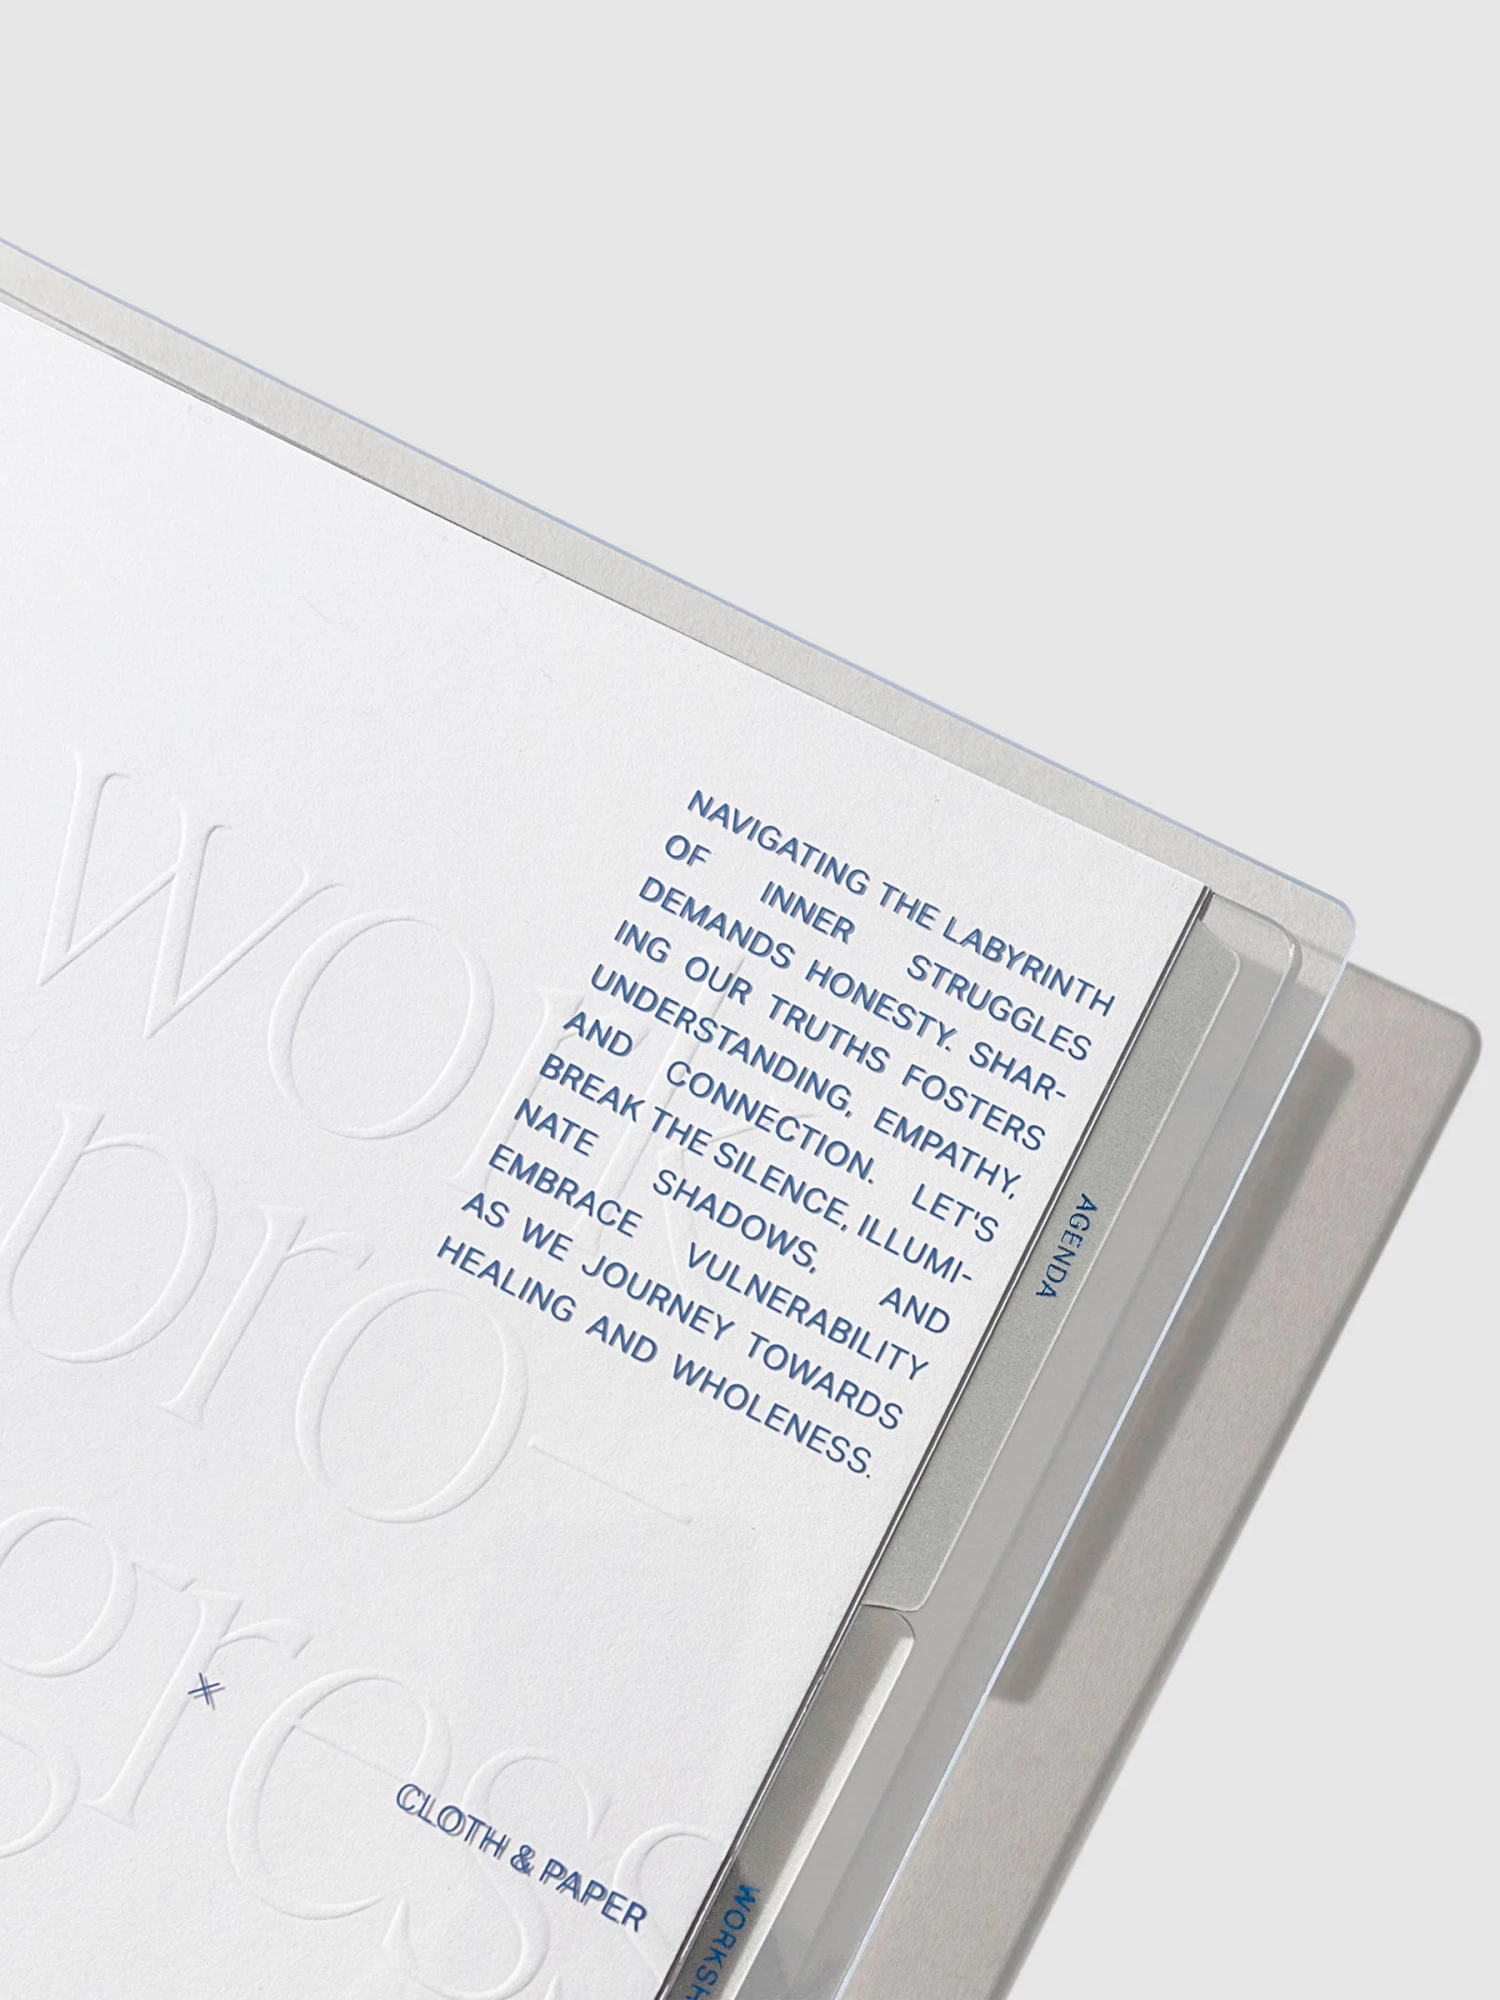 NAVIGATING THE LABYRINTH
OF INNER STRUGGLES
DEMANDS HONESTY. SHAR-
ING OUR TRUTHS FOSTERS
UNDERSTANDING, EMPATHY,
AND CONNECTION. LET'S
BREAK THE SILENCE, ILLUMI-
NATE SHADOWS, AND
EMBRACE VULNERABILITY
AS WE JOURNEY TOWARDS
HEALING AND WHOLENESS.
work
pro—
gress
CLOTH & PAPER
AGENDA
WORKSH